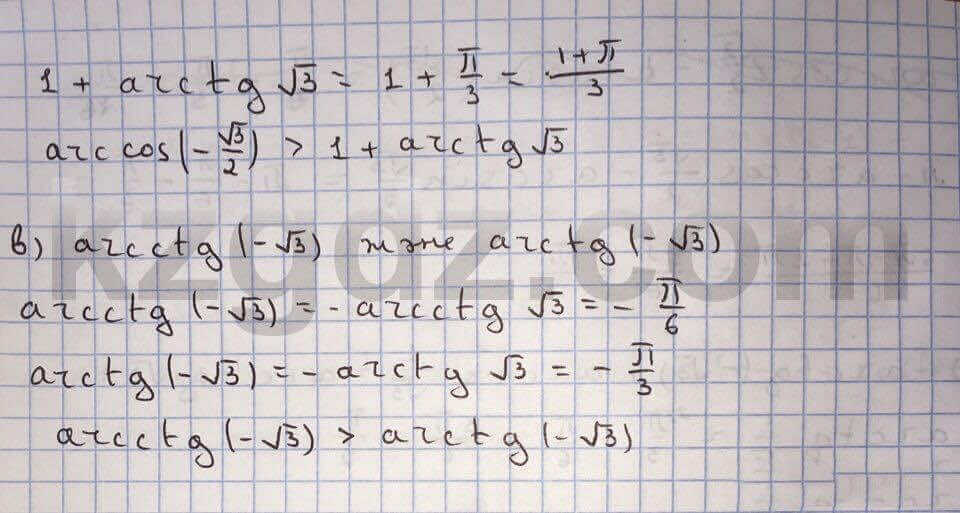 1 + arctg √3 = 1 + π/3 = 1+π/3
arccos(-√3/2) > 1 + arctg √3
в) arcctg (-√3) және arctg (-√3)
arcctg (-√3) = - arcctg √3 = - π/6
arctg (-√3) = - arctg √3 = - π/3
arcctg (-√3) > arctg (-√3)
kzgdz.com